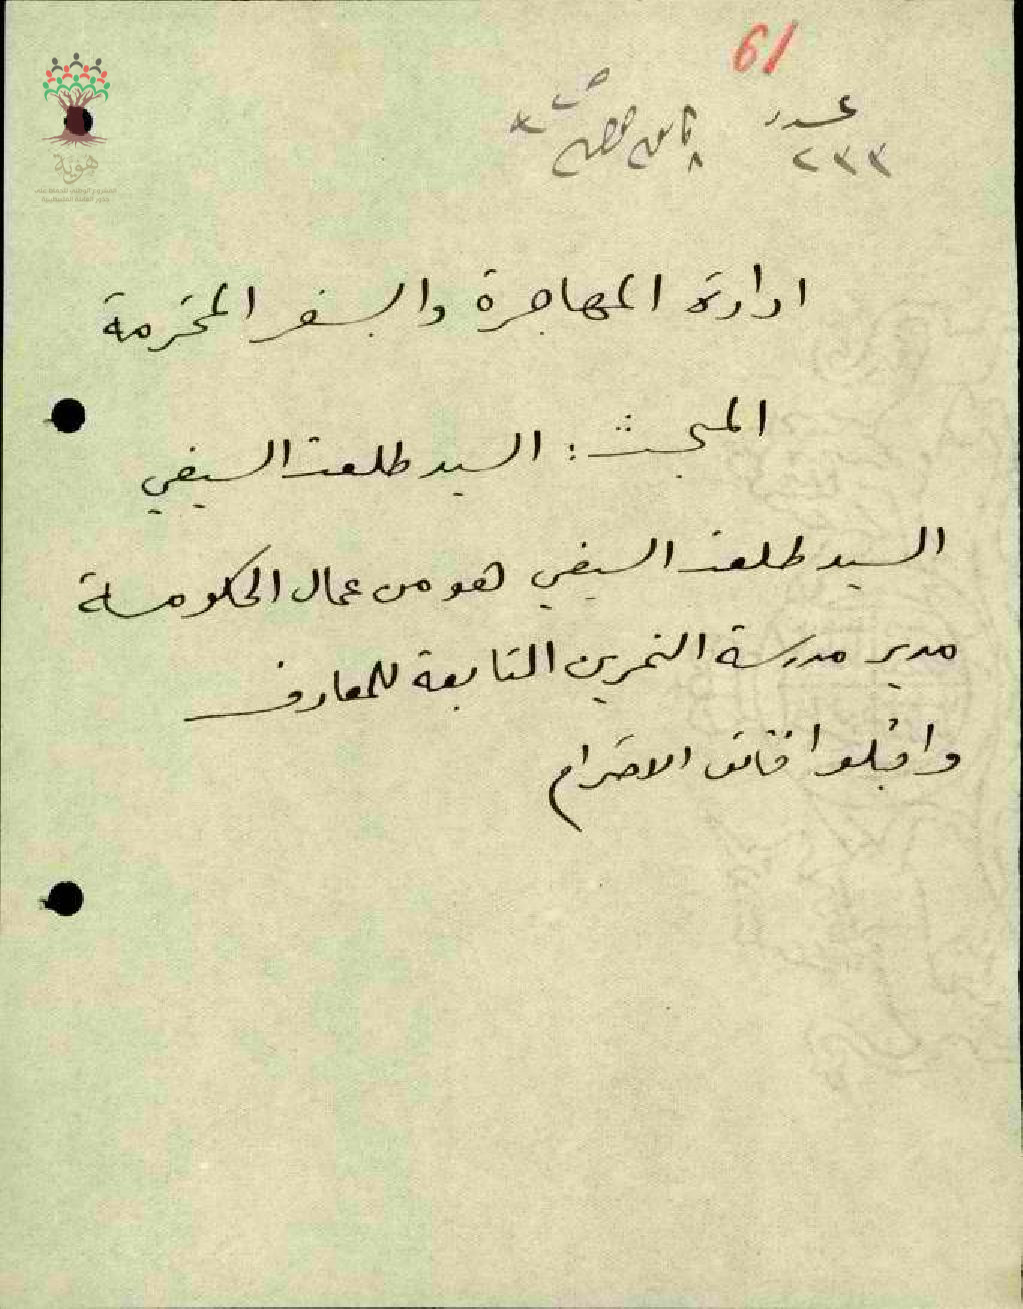 61
عدد
٢٣٣
ادارة المهاجرة والسفر المحترمة
المبحث : السيد طلعت السيفي
السيد طلعت السيفي هو من عمال الحكومة
مدير مدرسة التمرين التابعة للمعارف
واقبلوا فائق الاحترام
هوية